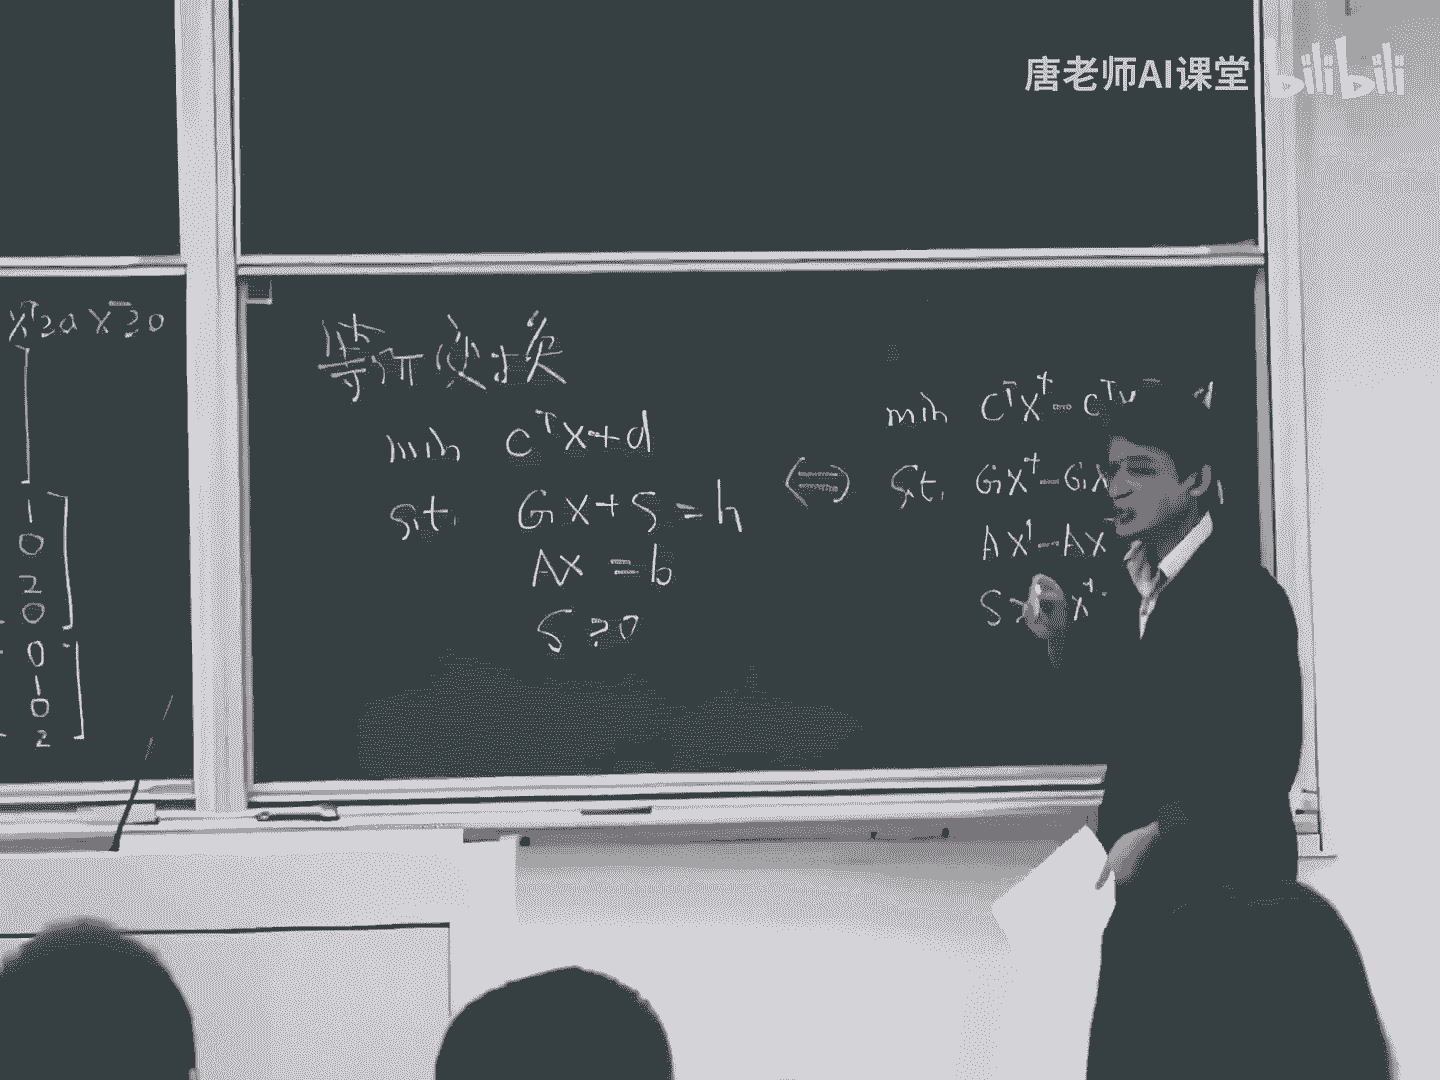 唐老师AI课堂 bilibili
X⁺≥0 X⁻≥0
1
0
2
0
0
1
0
2
等价变换
min CᵀX+d
s.t. GX+S=h
AX=b
S≥0
⇔
min CᵀX⁺-Cᵀ
s.t. GX⁺-GX
AX⁺-AX⁻
S≥ X⁺